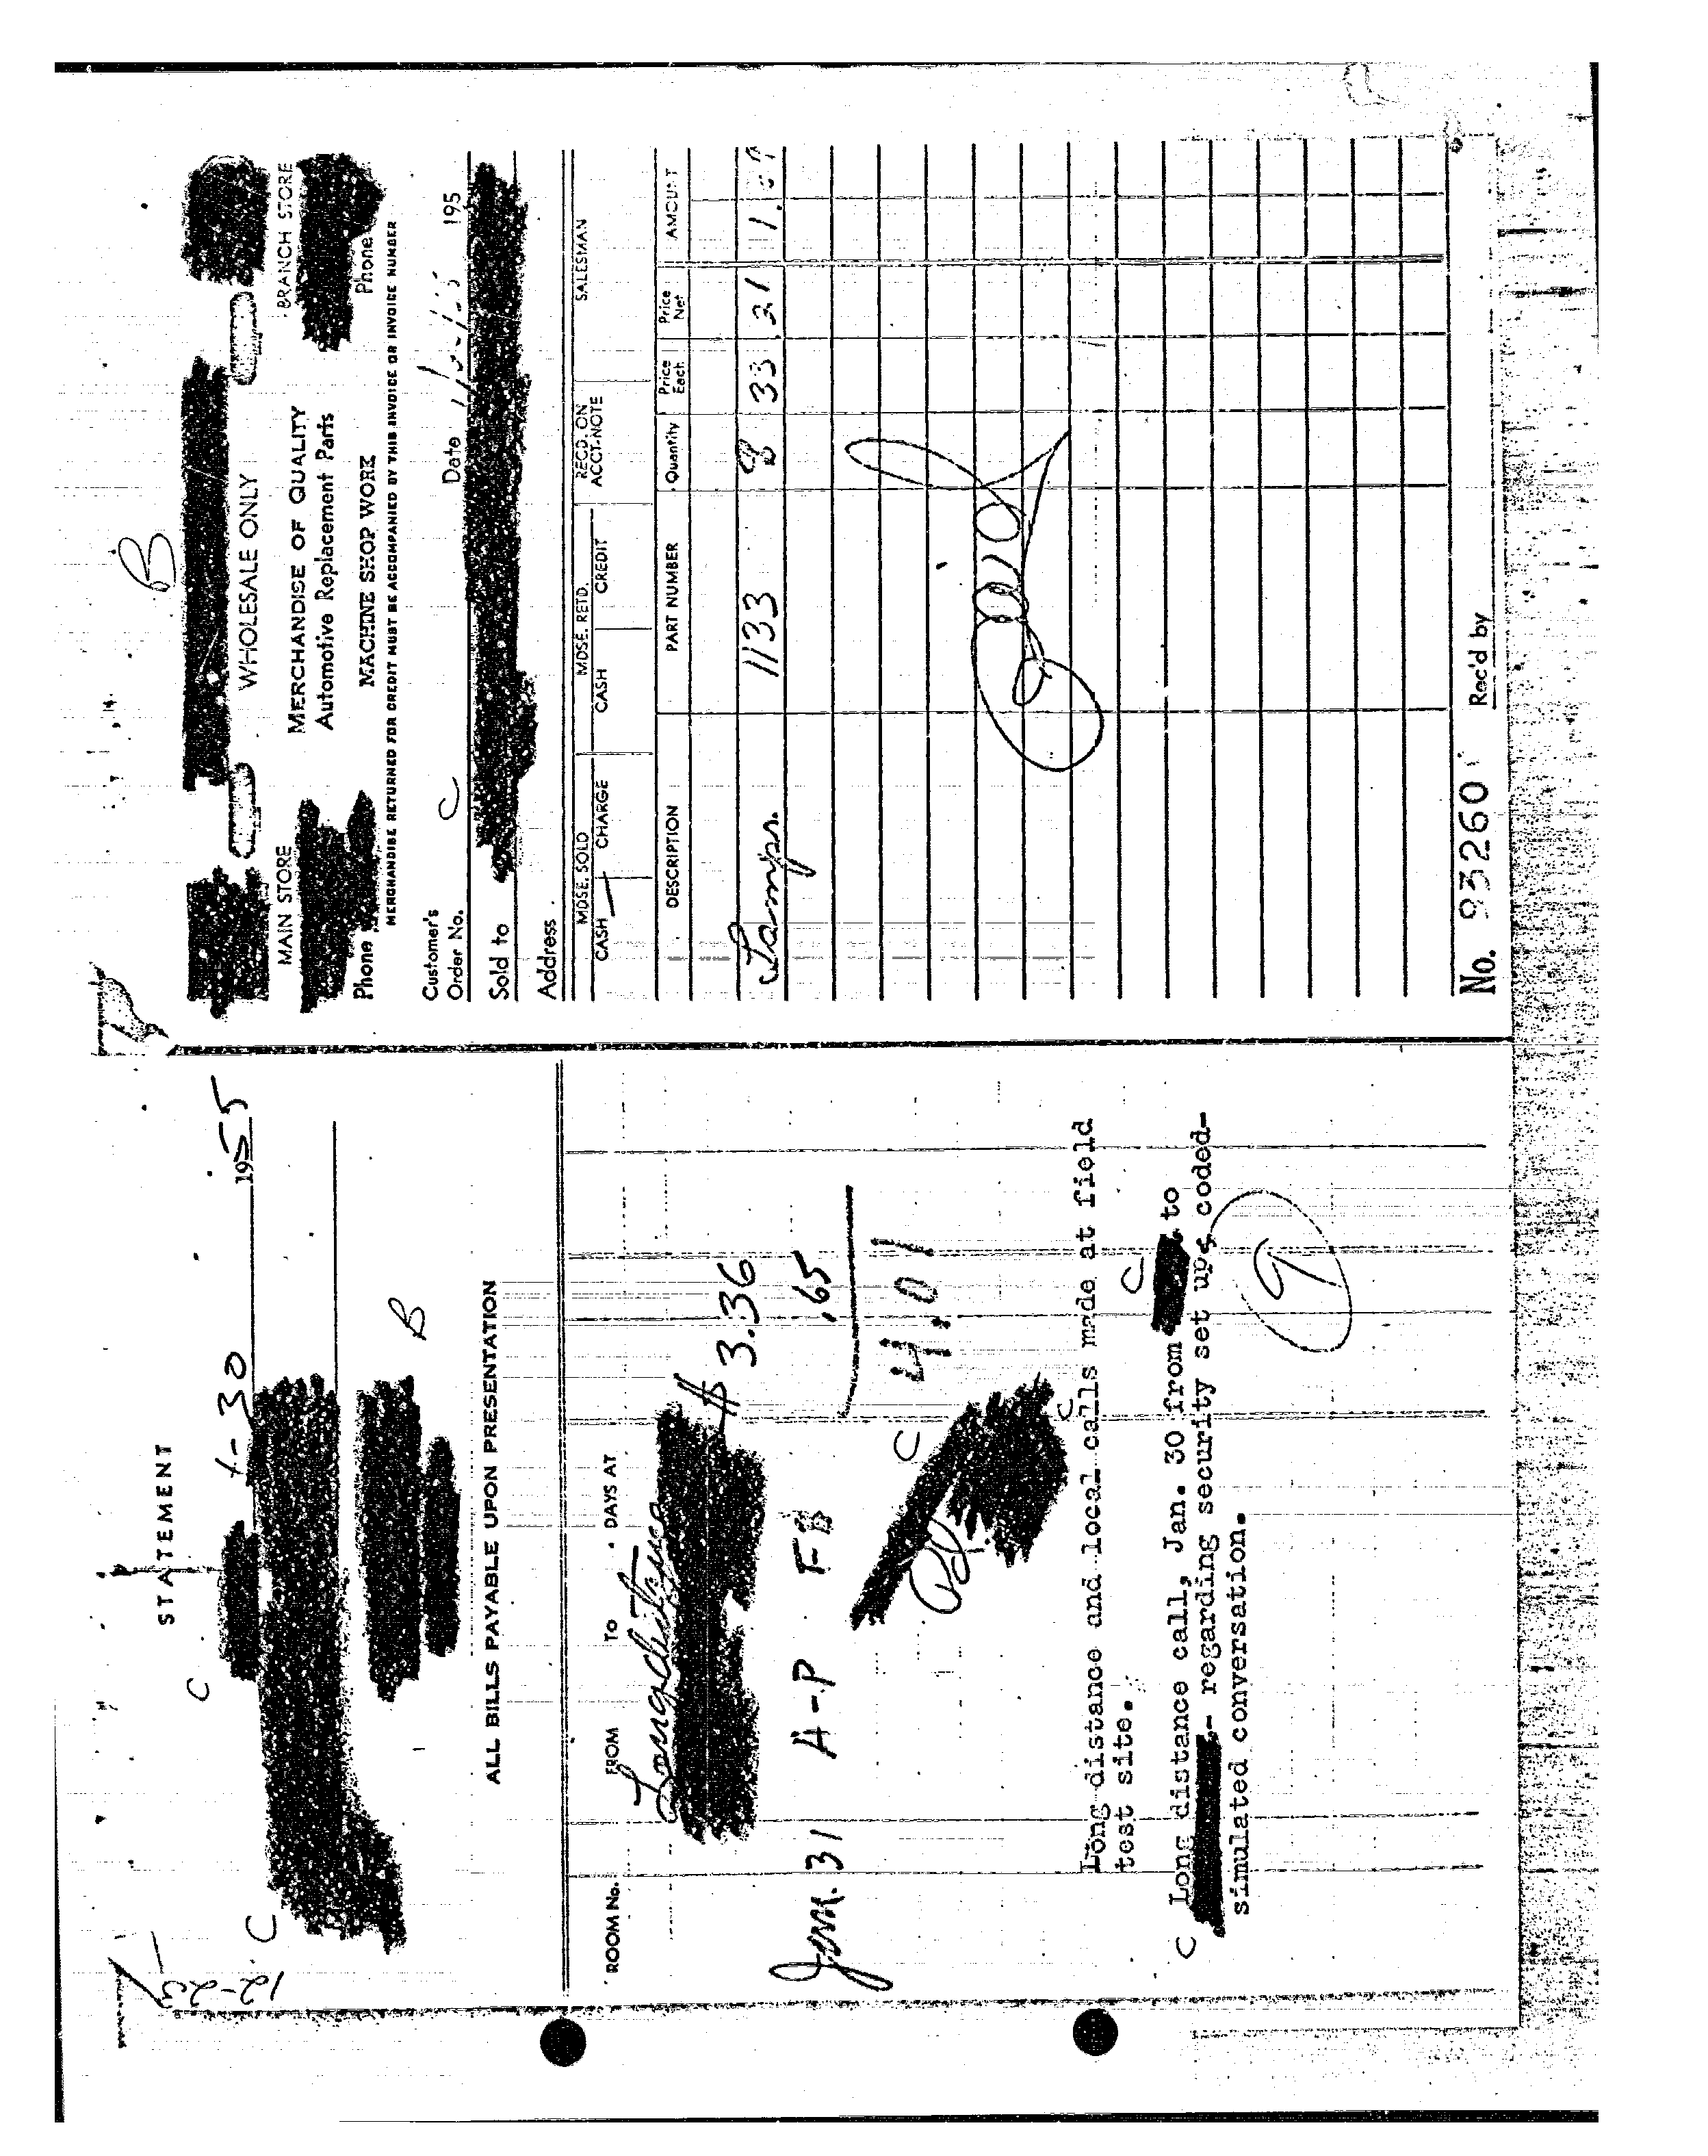 12-23
STATEMENT
C
1-30 1955
C
B
ALL BILLS PAYABLE UPON PRESENTATION
ROOM No. FROM TO DAYS AT
Longdistance
$ 3.36
Jan. 31 A-P FB .65
4.01
C
Long distance and local calls made at field
test site.
C
C Long distance call, Jan. 30 from to
- regarding security set ups coded-
simulated conversation.
9
B
WHOLESALE ONLY
MAIN STORE BRANCH STORE
MERCHANDISE OF QUALITY
Automotive Replacement Parts
Phone MACHINE SHOP WORK Phone
MERCHANDISE RETURNED FOR CREDIT MUST BE ACCOMPANIED BY THIS INVOICE OR INVOICE NUMBER
Customer's
Order No. C Date 195
Sold to
Address
MDSE. SOLD MDSE. RETD. REC'D. ON SALESMAN
CASH CHARGE CASH CREDIT ACCT-NOTE
DESCRIPTION PART NUMBER Quantity Price Each Price Net AMOUNT
Lamps. 1133 8 33 21
No. 93260 Rec'd by